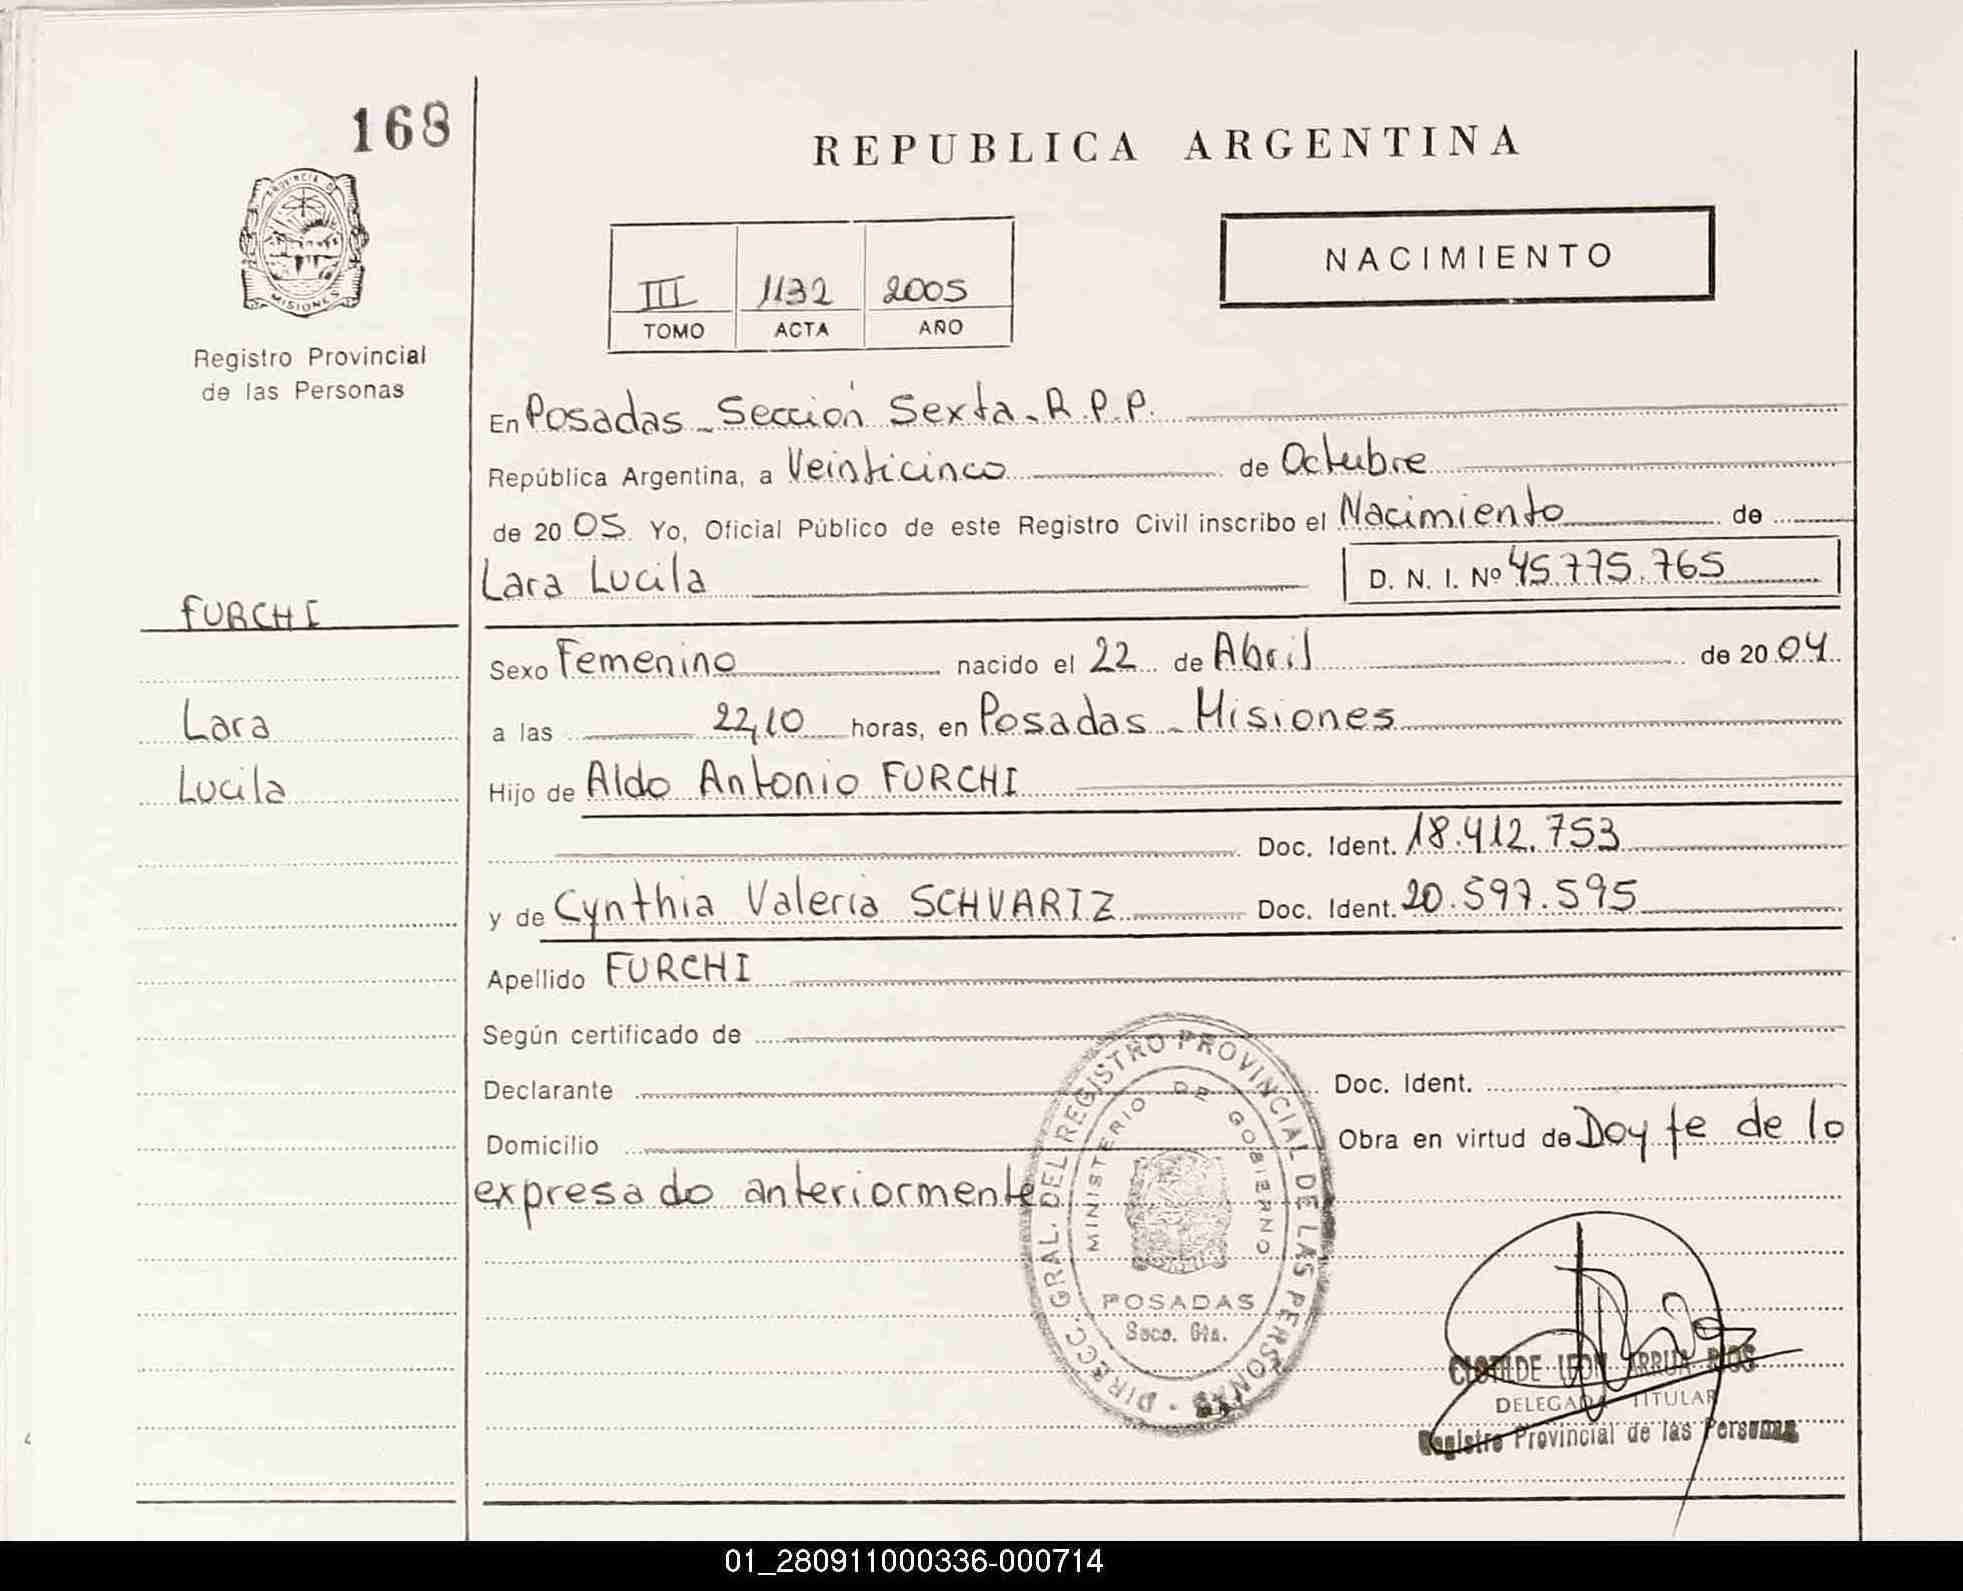 168
REPUBLICA ARGENTINA
PROVINCIA DE
MISIONES
NACIMIENTO
III 1132 2005
TOMO ACTA AÑO
Registro Provincial
de las Personas
En Posadas - Sección Sexta - R.P.P.
República Argentina, a Veinticinco de Octubre
de 20 05 Yo, Oficial Público de este Registro Civil inscribo el Nacimiento de
Lara Lucila D. N. I. Nº 45.775.765
FURCHI
Sexo Femenino nacido el 22 de Abril de 20 04
Lara
a las 22,10 horas, en Posadas - Misiones
Lucila
Hijo de Aldo Antonio FURCHI
Doc. Ident. 18.412.753
y de Cynthia Valeria SCHVARTZ Doc. Ident. 20.597.595
Apellido FURCHI
Según certificado de
Declarante Doc. Ident.
Domicilio Obra en virtud de Doy fe de lo
expresado anteriormente
DIRECC. GRAL. DEL REGISTRO PROVINCIAL DE LAS PERSONAS
MINISTERIO DE GOBIERNO
POSADAS
Secc. 6ta.
CLOTILDE LEON ARRUA RIOS
DELEGADA TITULAR
Registro Provincial de las Personas
01_280911000336-000714